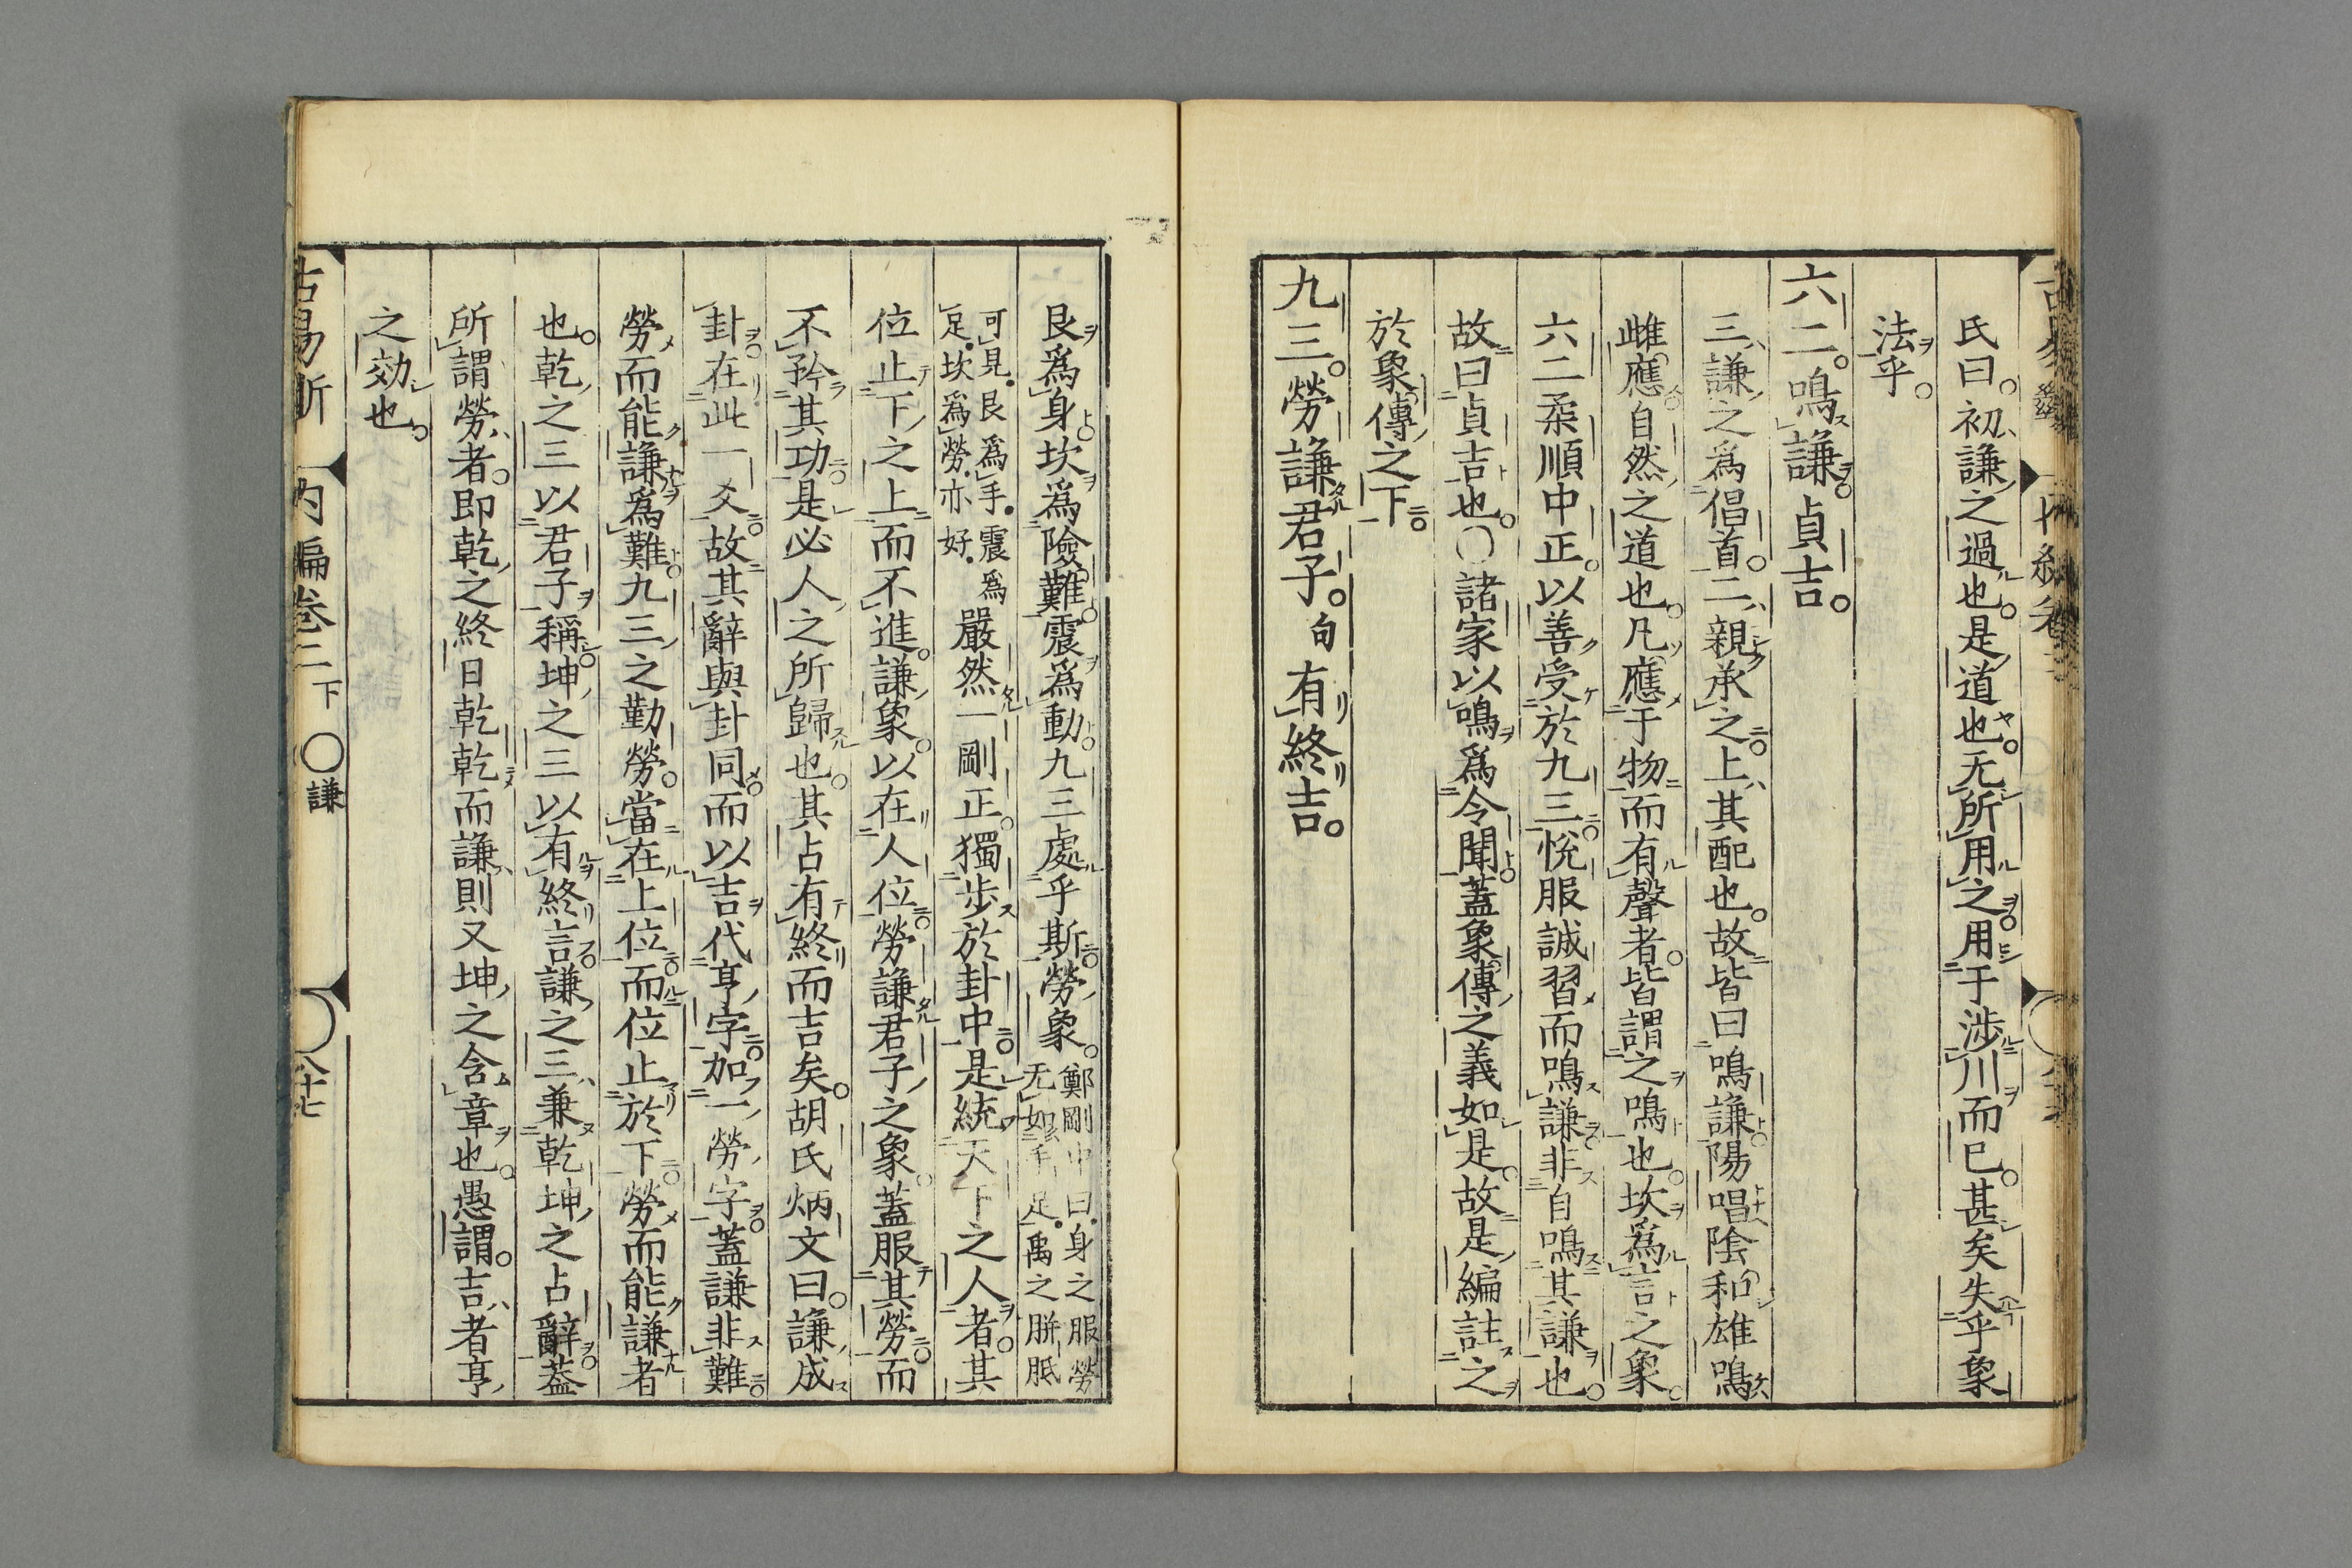 氏曰。初謙之過也。是道也。无所用之。用于涉川而已。甚矣失乎象
法乎。
六二。鳴謙。貞吉。
三謙之爲倡首。二親承之上其配也。故皆曰鳴謙陽唱陰和雄鳴
雌應自然之道也。凡應于物而有聲者。皆謂之鳴也。坎爲言之象。
六二柔順中正。以善受於九三。悅服誠習而鳴謙。非自鳴其謙也。
故曰貞吉也。〇諸家以鳴爲令聞。蓋象傳之義如是。故是編註之
於象傳之下。
九三。勞謙君子。句有終吉。
艮爲身。坎爲險難。震爲動。九三處乎斯。勞象。鄭剛中曰。身之服勞
无如手足。禹之胼胝
可見。艮爲手。震爲
足。坎爲勞。亦好。嚴然一剛正。獨步於卦中。是統天下之人者。其
位止下之上而不進。謙象。以在人位。勞謙君子之象。蓋服其勞。而
不矜其功。是必人之所歸也。其占有終而吉矣。胡氏炳文曰。謙成
卦。在此一爻。故其辭與卦同。而以吉代亨字。加一勞字。蓋謙非難。
勞而能謙爲難。九三之勤勞。當在上位。而位止於下。勞而能謙者
也。乾之三以君子稱。坤之三以有終言。謙之三兼乾坤之占辭。蓋
所謂勞者。即乾之終日乾乾而謙則又坤之含章也。愚謂。吉者亨
之効也。
古易斷 内編卷二下 〇謙 八十七